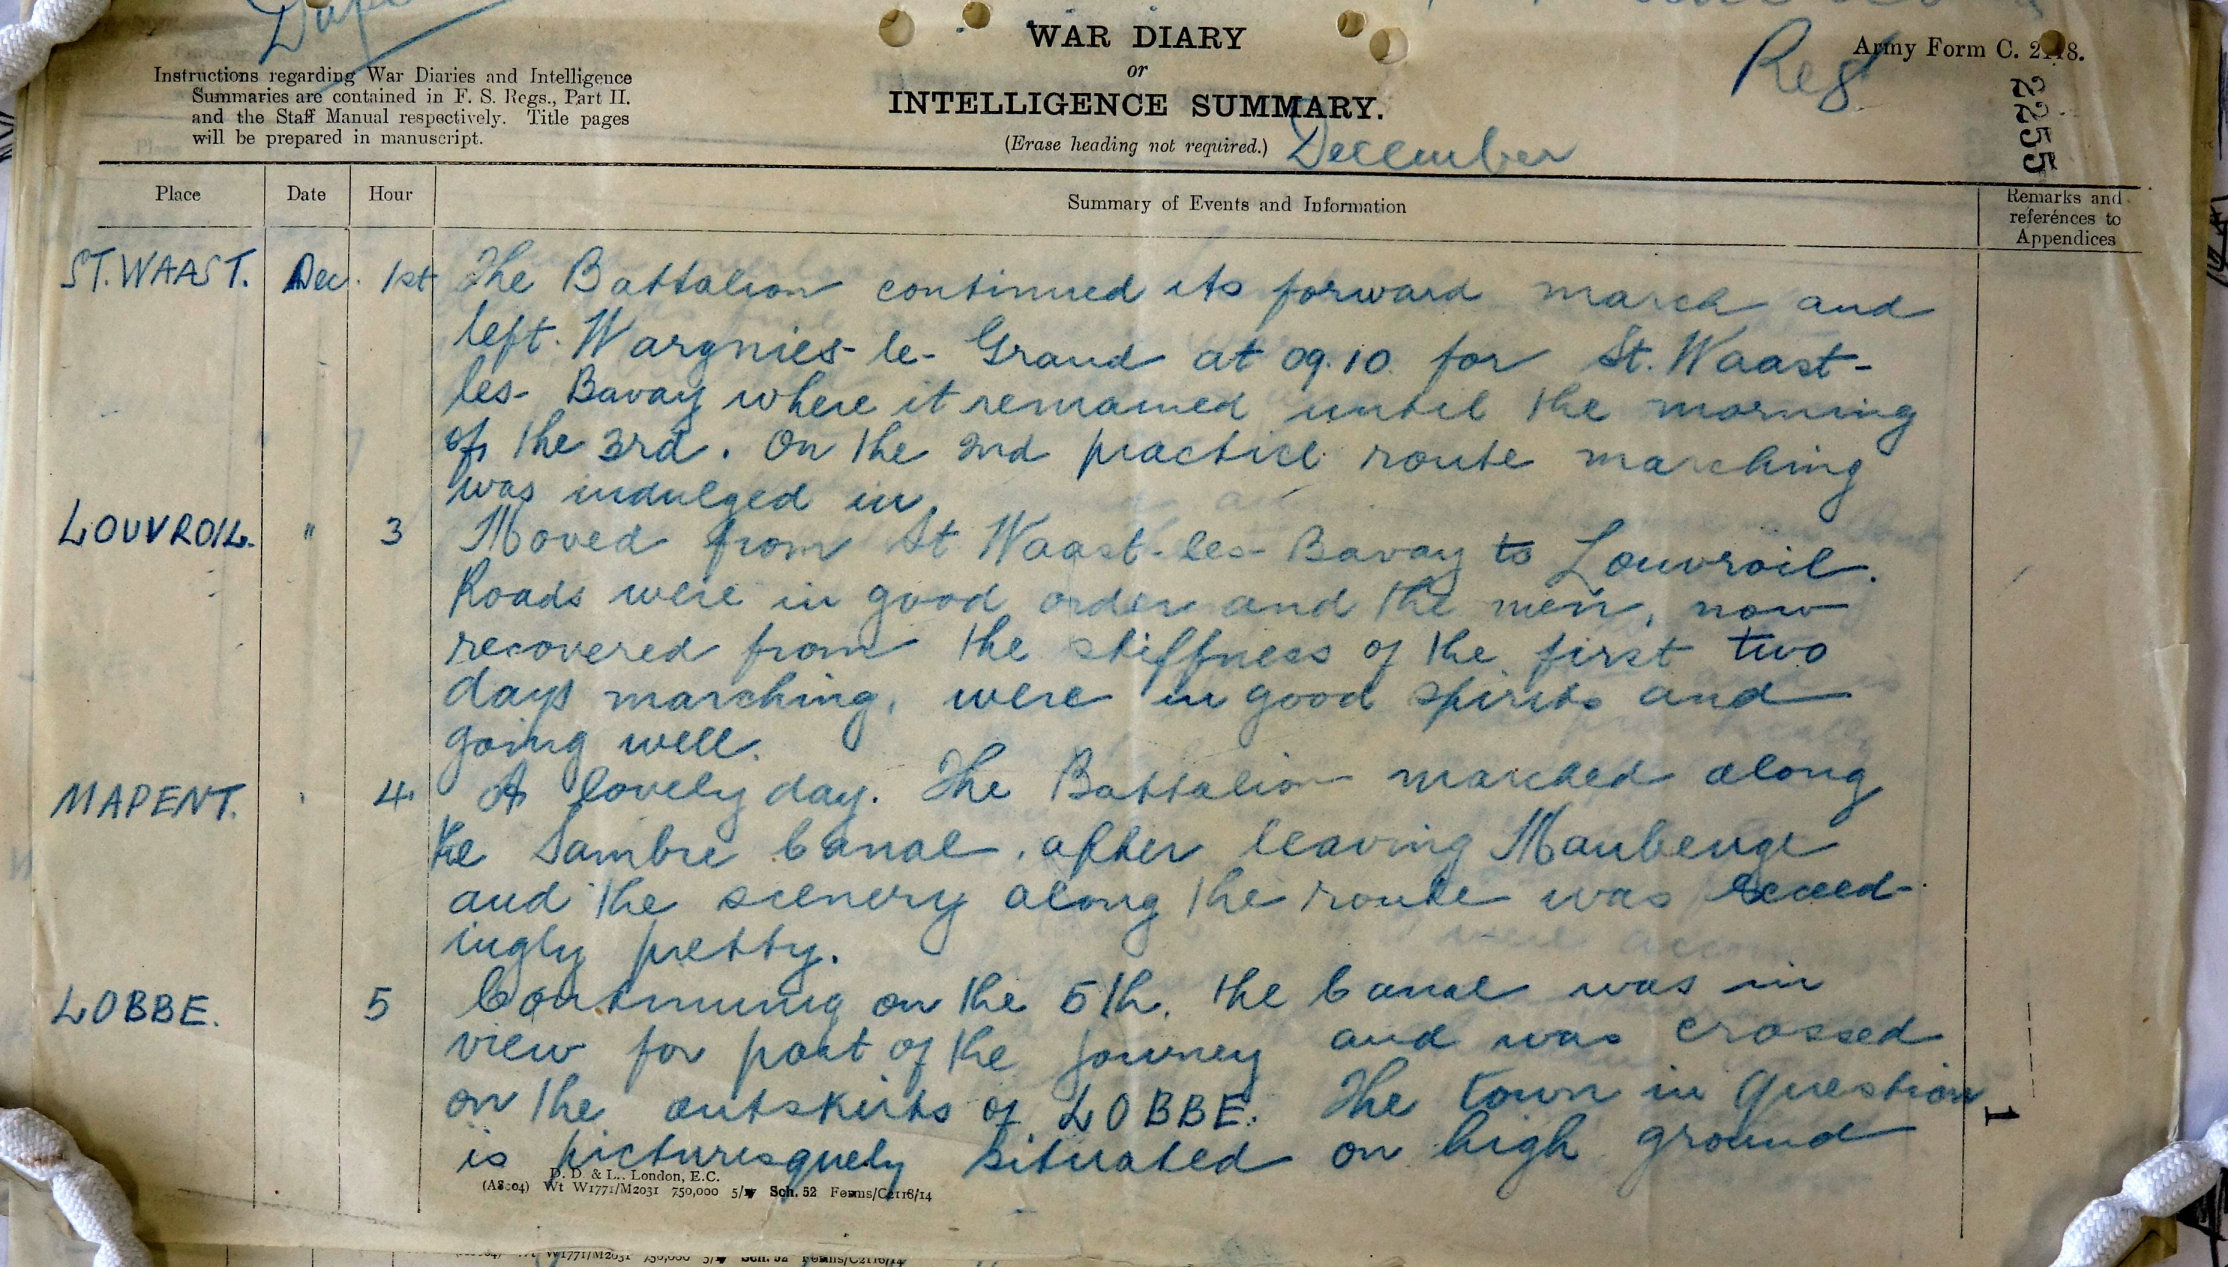 WAR DIARY
or
INTELLIGENCE SUMMARY.
(Erase heading not required.) December
Army Form C. 2118.
Instructions regarding War Diaries and Intelligence
Summaries are contained in F. S. Regs., Part II.
and the Staff Manual respectively. Title pages
will be prepared in manuscript.
2255
Place Date Hour Summary of Events and Information Remarks and
references to
Appendices
ST. WAAST. Dec. 1st The Battalion continued its forward march and
left. Wargnies-le-Grand at 09.10. for St. Waast-
les-Bavay where it remained until the morning
of the 3rd. On the 2nd practice route marching
was indulged in.
LOUVROIL. " 3 Moved from St Waast-les-Bavay to Louvroil.
Roads were in good order and the men, now
recovered from the stiffness of the first two
days marching, were in good spirits and
going well.
MAPENT. " 4. A lovely day. The Battalion marched along
the Sambre Canal, after leaving Maubeuge
and the scenery along the route was exceed-
ingly pretty.
LOBBE. 5 Continuing on the 5th. the Canal was in
view for part of the journey and was crossed
on the outskirts of LOBBE. The town in question
is picturesquely situated on high ground
1
D. D. & L., London, E.C.
(A8004) Wt W1771/M2031 750,000 5/17 Sch. 52 Forms/C2118/14
W1771/M2031 750,000 5/17 Sch. 52 Forms/C2118/14